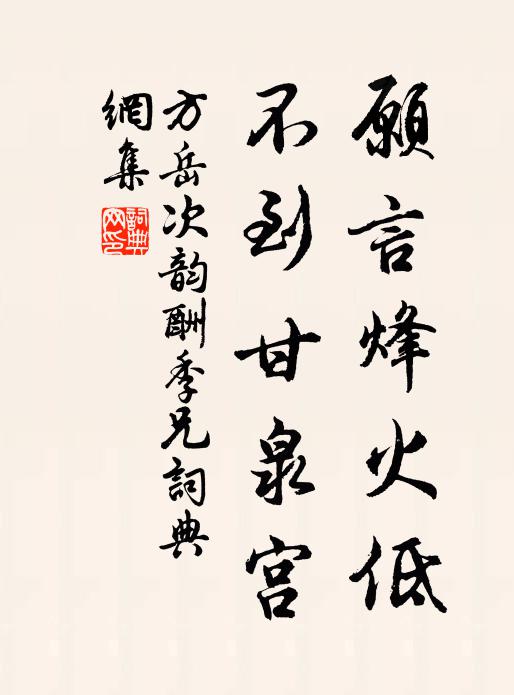 願言烽火低
不到甘泉宮
方岳次韵酬季兄詞典
網集
詞典
网印